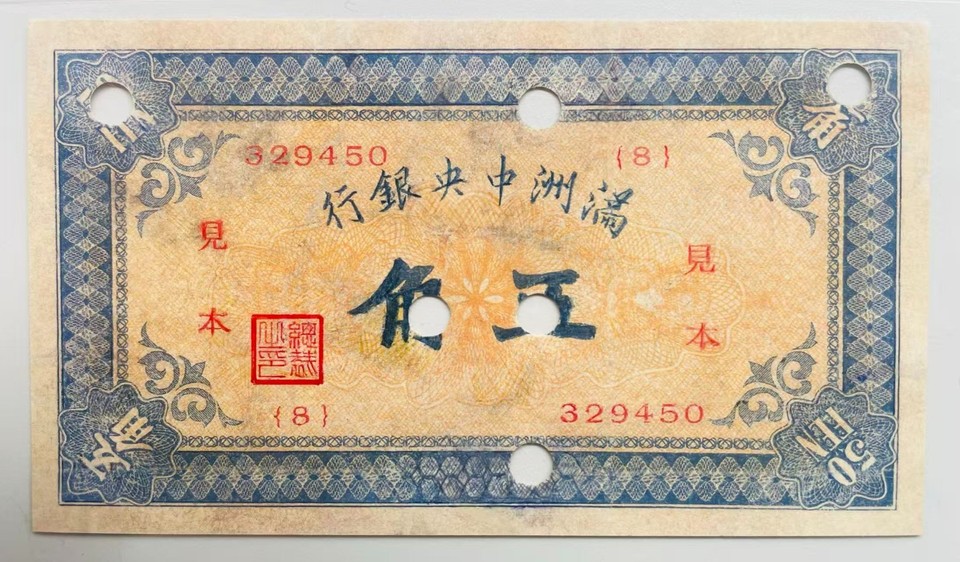 329450 {8}
滿洲中央銀行
五角
見本
見本
總裁之印
{8} 329450
角
伍角
50 FEN